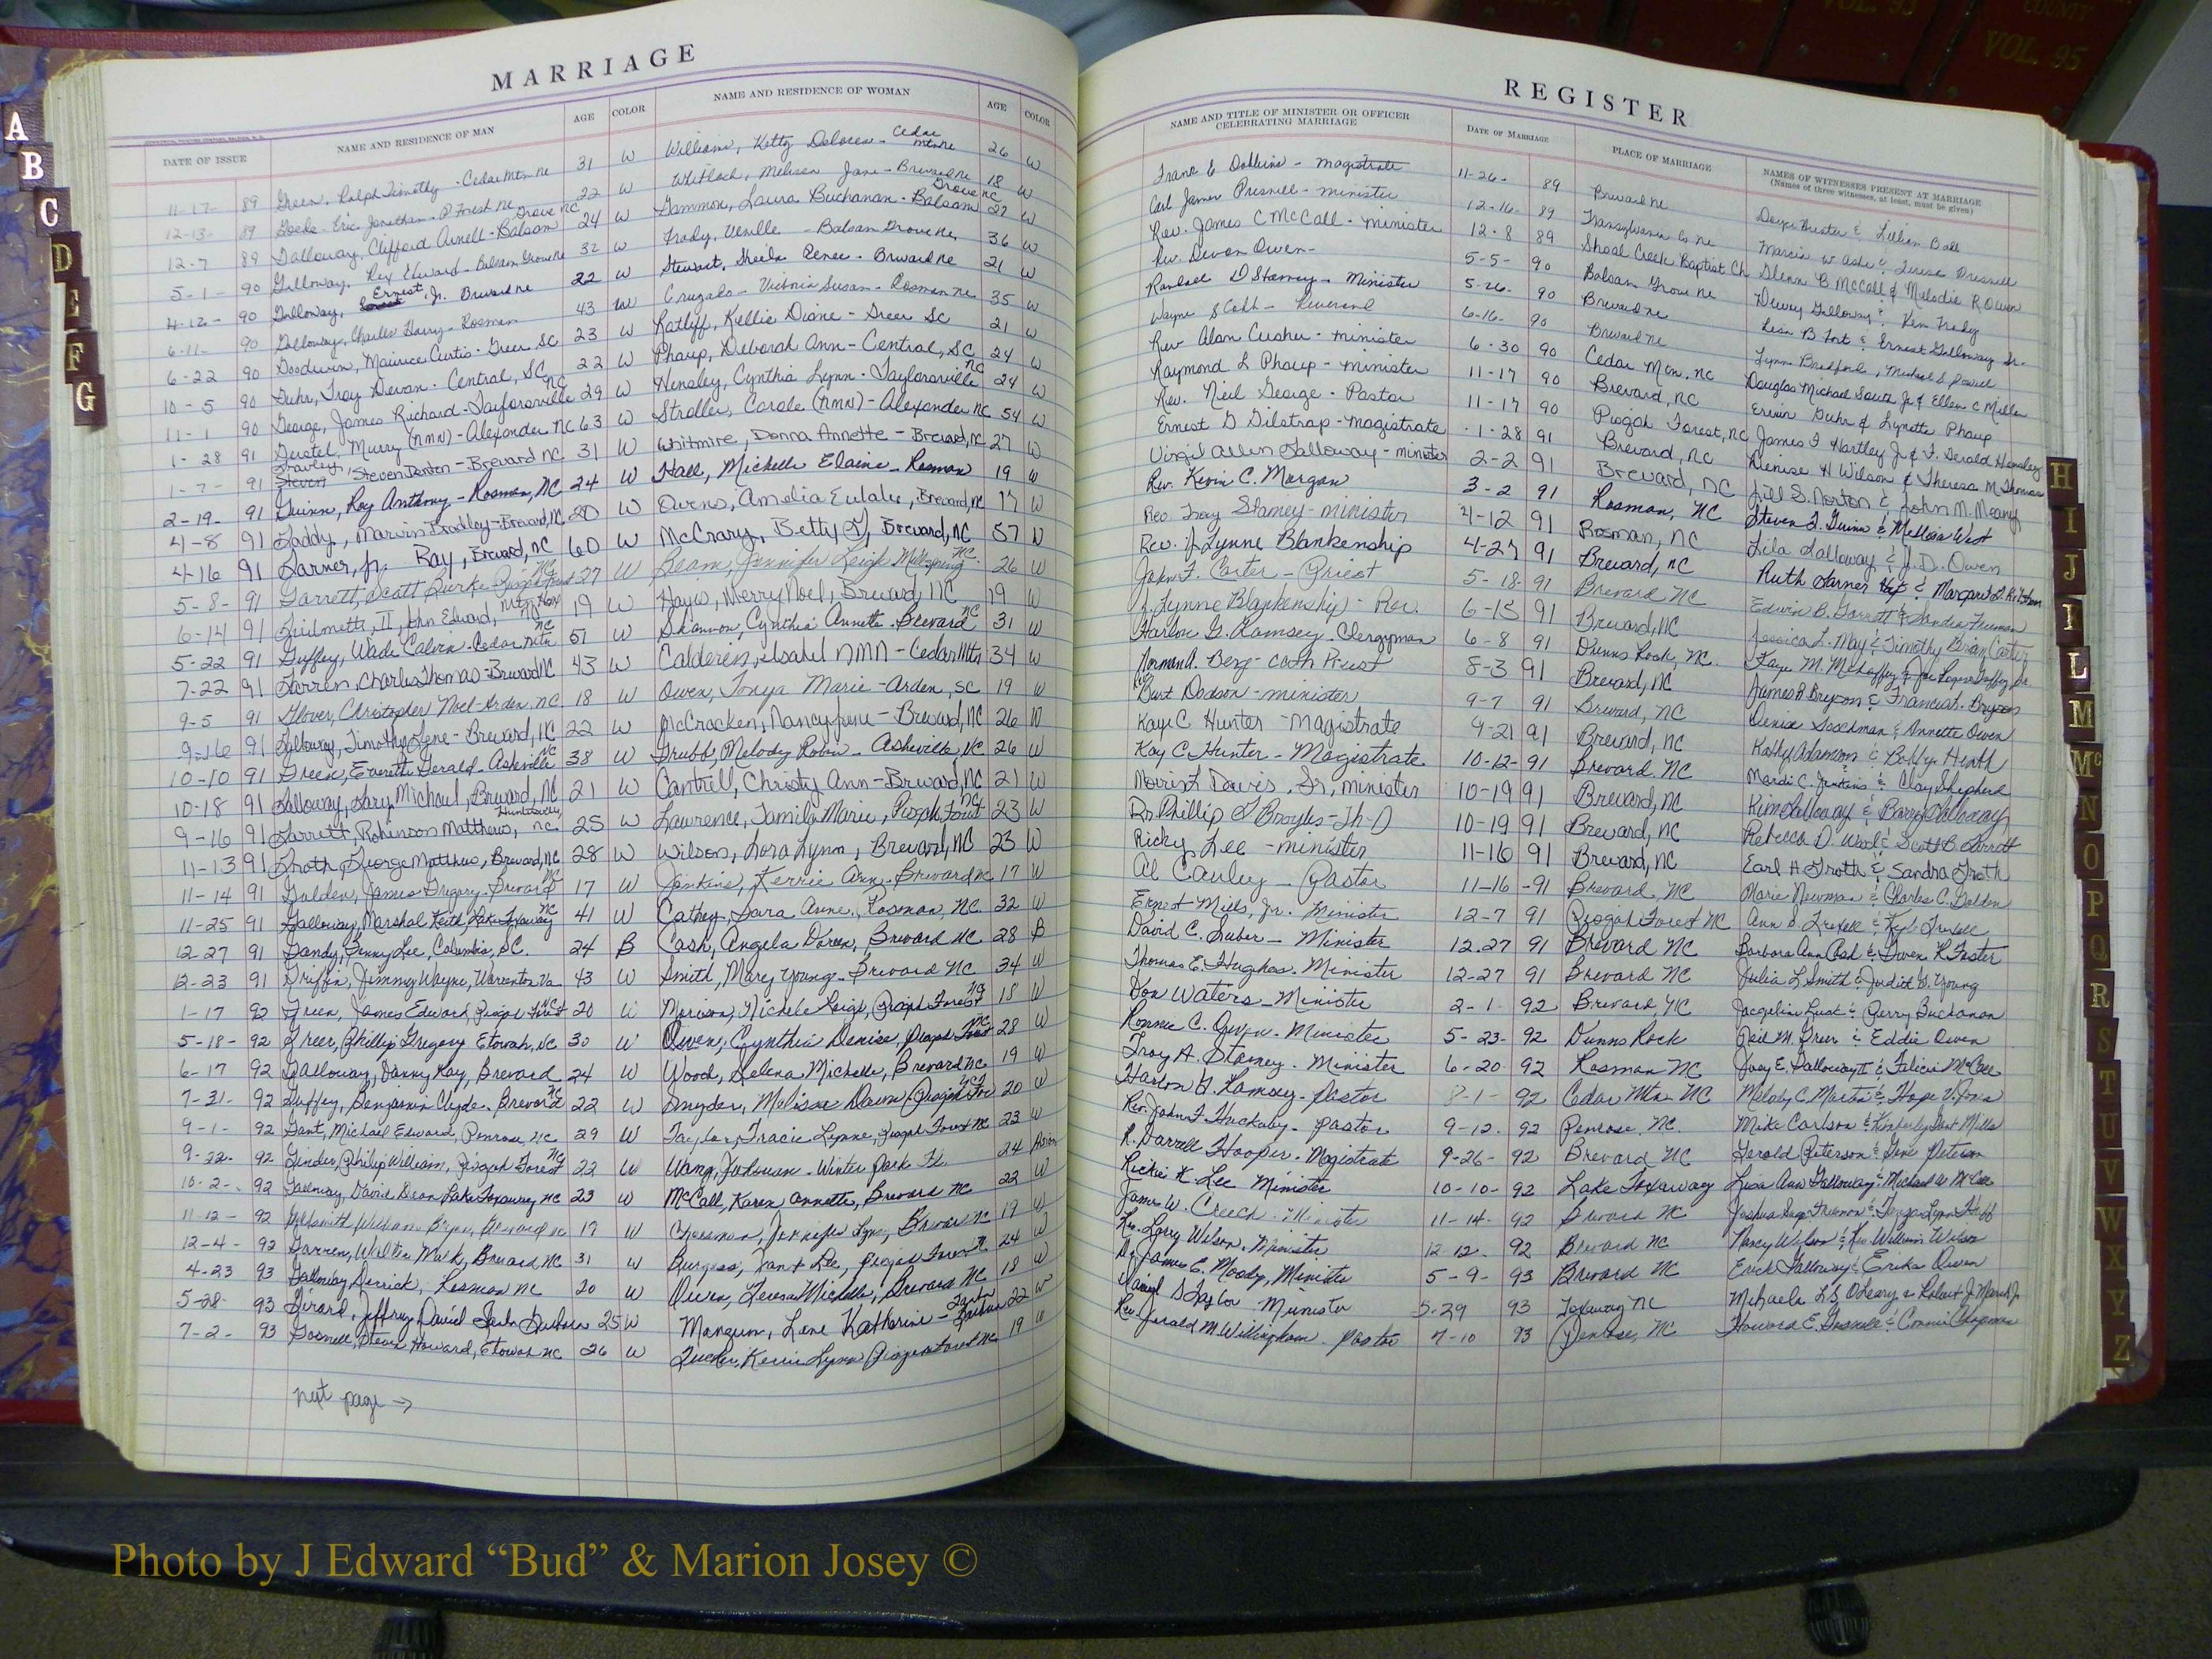 MARRIAGE
DATE OF ISSUE NAME AND RESIDENCE OF MAN AGE COLOR NAME AND RESIDENCE OF WOMAN AGE COLOR
11-17- 89 Green, Ralph Timothy - Cedar Mtn nc 31 W Williams, Kitty Delores - Cedar Mtn nc 26 W
12-13- 89 Eric Jonathan - P Forest nc 22 W Whitlock, Melissa Jane - Brevard nc 18 W
12-7 89 Galloway, Clifford Arnell - Balsam Grove NC 24 W Gammon, Laura Buchanan - Balsam Grove NC 22 W
5-1- 90 Galloway, Rex Edward - Balsam Grove nc 32 W - Balsam Grove nc 36 W
4-12- 90 Galloway, Ernest, Jr. Brevard nc 22 W Stewart, Sheila Renee - Brevard nc 21 W
6-11- 90 Galloway, Charles Harry - Rosman 43 W Victoria Susan - Rosman nc 35 W
6-22 90 Goodwin, Maurice Curtis - Greer SC 23 W Ratliff, Kellie Diane - Greer SC 21 W
10-5 90 Guhr, Troy Devan - Central, SC 22 W Phaup, Deborah Ann - Central, SC 24 W
11-1 90 George, James Richard - Taylorsville NC 29 W Hensley, Cynthia Lynn - Taylorsville NC 24 W
1-28 91 Gerstel, Murry (NMN) - Alexander NC 63 W Carole (NMN) - Alexander NC 54 W
1-7- 91 Gravley, Steven Denton - Brevard NC 31 W Whitmire, Donna Annette - Brevard, NC 27 W
2-19- 91 Guinn, Roy Anthony - Rosman, NC 24 W Hall, Michelle Elaine - Rosman 19 W
4-8 91 Gaddy, Marvin Bradley - Brevard, NC 20 W Owens, Amelia Eulalie, Brevard, NC 17 W
4-16 91 Garner, Jr. Ray, Brevard, NC 60 W McCrary, Betty J, Brevard, NC 57 W
5-8- 91 Garrett, Scott Burke Pisgah Forest NC 27 W Beam, Jennifer Leigh Mill Spring NC 26 W
6-14 91 II, John Edward, 19 W Hayes, Merry Noel, Brevard, NC 19 W
5-22 91 Guffey, Wade Calvin - Cedar Mtn NC 51 W Shannon, Cynthia Annette - Brevard NC 31 W
7-22 91 Garren, Charles Thomas - Brevard NC 43 W Isabel NMN - Cedar Mtn 34 W
9-5 91 Glover, Christopher Noel - Arden, NC 18 W Owen, Tonya Marie - Arden, SC 19 W
9-16 91 Galloway, Timothy Gene - Brevard, NC 22 W McCracken, Nancy June - Brevard, NC 26 W
10-10 91 Green, Everette Gerald - Asheville NC 38 W Grubb, Melody Robin - Asheville, NC 26 W
10-18 91 Galloway, Gary Michael, Brevard, NC 21 W Cantrell, Christy Ann - Brevard, NC 21 W
9-16 91 Garrett, Robinson Matthews, NC 25 W Lawrence, Marie, Pisgah Forest NC 23 W
11-13 91 Groth George Matthew, Brevard, NC 28 W Wilson, Lora Lynn, Brevard, NC 23 W
11-14 91 Golden, James Gregory - Brevard NC 17 W Jenkins, Kerrie Ann - Brevard nc 17 W
11-25 91 Galloway, Marshal Keith, Lake Toxaway NC 41 W Cathey, Sara Anne, Rosman, NC 32 W
12-27 91 Gandy, Benny Lee, Columbia, SC. 24 B Cash, Angela Doreen, Brevard NC 28 B
12-23 91 Griffin, Jimmy Wayne, Warrenton Va 43 W Smith, Mary Young - Brevard NC 34 W
1-17 92 Green, James Edward, Pisgah Forest NC 20 W Michele Leigh, Pisgah Forest NC 18 W
5-18- 92 Greer, Phillip Gregory Etowah, NC 30 W Owen, Cynthia Denise, Pisgah Forest NC 28 W
6-17 92 Galloway, Danny Ray, Brevard 24 W Wood, Michelle, Brevard NC 19 W
7-31- 92 Guffey, Benjamin Clyde - Brevard NC 22 W Snyder, Melissa Dawn Pisgah For NC 20 W
9-1- 92 Gant, Michael Edward, Penrose, NC 29 W Taylor, Tracie Lynne, Pisgah Forest NC 23 W
9-22- 92 Philip William, Pisgah Forest NC 22 W Wang, - Winter Park Fl. 24 Asian
10-2-. 92 Galloway, David Dean Lake Toxaway NC 23 W McCall, Karen Annette, Brevard NC 22 W
11-12- 92 Goldsmith, William 19 W Jennifer Lynn, Brevard NC 19 W
12-4- 92 Garren, Walter Mark, Brevard NC 31 W Burgess, Lee, Pisgah Forest 24 W
4-23 93 Galloway, Derrick, Rosman NC 20 W Owen, Teresa Michelle, Brevard NC 18 W
5-28- 93 Girard, Jeffrey David Santa Barbara 25 W Mangum, Lane Katherine - Santa Barbara 22 W
7-2- 93 Gosnell, Steven Howard, Etowah NC 26 W Tucker, Kerrie Lynn Pisgah Forest NC 19 W
next page →
REGISTER
NAME AND TITLE OF MINISTER OR OFFICER CELEBRATING MARRIAGE DATE OF MARRIAGE PLACE OF MARRIAGE NAMES OF WITNESSES PRESENT AT MARRIAGE
(Names of three witnesses, at least, must be given)
- magistrate 11-26- 89 Brevard nc & Lillian Ball
Carl James Presnell - minister 12-16- 89 Transylvania Co nc Marcia W Ashe & Teresa Presnell
Rev. James C McCall - minister 12-8 89 Shoal Creek Baptist Ch Glenn B McCall & Melodie R Owen
Rev. Devon Owen - 5-5- 90 Balsam Grove nc Dewey Galloway & Ken
Randall D Stamey - Minister 5-26- 90 Brevard nc & Ernest Galloway Jr.
Wayne - Reverend 6-16- 90 Brevard nc Lynn Bradford, Michael S
Rev Alan - minister 6-30 90 Cedar Mtn. NC Douglas Michael South Jr & Ellen C Miller
Raymond L Phaup - minister 11-17 90 Brevard, NC Ervin Guhr & Lynette Phaup
Rev. Neil George - Pastor 11-17 90 Pisgah Forest, NC James F Hartley Jr & F. Gerald Hensley
Ernest G Gilstrap - magistrate 1-28 91 Brevard, NC Denise H Wilson & Theresa M Thomas
Virgil Allen Galloway - minister 2-2 91 Brevard, NC Jill S. Norton & John M. Meany
Rev. Kevin C. Morgan 3-2 91 Rosman, NC Steven J. Guinn & Melissa West
Rev. Troy Stamey - minister 4-12 91 Rosman, NC Lila Galloway & J.D. Owen
Rev. J. Lynne Blankenship 4-27 91 Brevard, NC Ruth Garner & Margaret
John F. Carter - Priest 5-18- 91 Brevard NC Edwin B. Garrett & Sandra Freeman
J. Lynne Blankenship - Rev. 6-15 91 Brevard, NC Jessica L. May & Timothy Brian Carter
Harlon G. Ramsey - Clergyman 6-8 91 Dunns Rock, NC. Kaye M. Mehaffey &
Norman A. Berg - Cath Priest 8-3 91 Brevard, NC James R Bryson & Frances Bryson
Burt Dodson - minister 9-7 91 Brevard, NC & Annette Owen
Kaye C Hunter - Magistrate 9-21 91 Brevard, NC Kathy Adamson & Bobby Heath
Kay C. Hunter - Magistrate 10-12-91 Brevard NC Mardi C. Jenkins & Clay Shepherd
Davis, Sr, minister 10-19 91 Brevard, NC Kim Galloway & Barry Galloway
Dr. Phillip S Broyles - Th-D 10-19 91 Brevard, NC Rebecca D. Wood & Scott B. Garrett
Ricky Lee - minister 11-16 91 Brevard, NC Earl H Groth & Sandra Groth
Al Cauley - Pastor 11-16-91 Brevard, NC Marie Newman & Charles C. Golden
Ernest Mills, Jr. Minister 12-7 91 Pisgah Forest NC Ann &
David C. Suber - Minister 12.27 91 Brevard NC Barbara Ann Cash & Gwen R Foster
Thomas E. Hughes - Minister 12-27 91 Brevard NC Julia L Smith & Judith G. Young
Don Waters - Minister 2-1- 92 Brevard, NC Jacqueline & Perry Buchanan
Ronnie C. Owen - Minister 5-23- 92 Dunns Rock Neil M. Greer & Eddie Owen
Troy A. Stamey - Minister 6-20 92 Rosman NC Joey E. Galloway II & Felicia McCall
Harlon G. Ramsey - Pastor 8-1- 92 Cedar Mtn NC Melody C. Martin & Hope V. Jones
Rev. John F. Huckaby - pastor 9-12- 92 Penrose, NC. Mike Carlson & Kimberly Gant Mills
R. Darrell Hooper - Magistrate 9-26- 92 Brevard NC Gerald Peterson & Gene Peterson
Rickie K. Lee Minister 10-10- 92 Lake Toxaway Lisa Ann Galloway & Michael W McCall
James W. Creech - Minister 11-14- 92 Brevard NC
Rev. Larry Wilson, Minister 12-12- 92 Brevard NC Nancy Wilson & Rev. William Wilson
Dr. James E. Moody, Minister 5-9- 93 Brevard NC Erick Galloway & Erika Owen
S Taylor - Minister 5-29 93 Toxaway NC Michaela O'Leary & Robert J. Marsh Jr
Rev. Jerald M. Willingham - Pastor 7-10 93 Penrose, NC Howard E. Gosnell & Connie Chapman
A
B
C
D
E
F
G
H
I
J
K
L
M
Mc
N
O
P
Q
R
S
T
U
V
W
X
Y
Z
VOL. 93
COUNTY
VOL. 95
Photo by J Edward “Bud” & Marion Josey ©